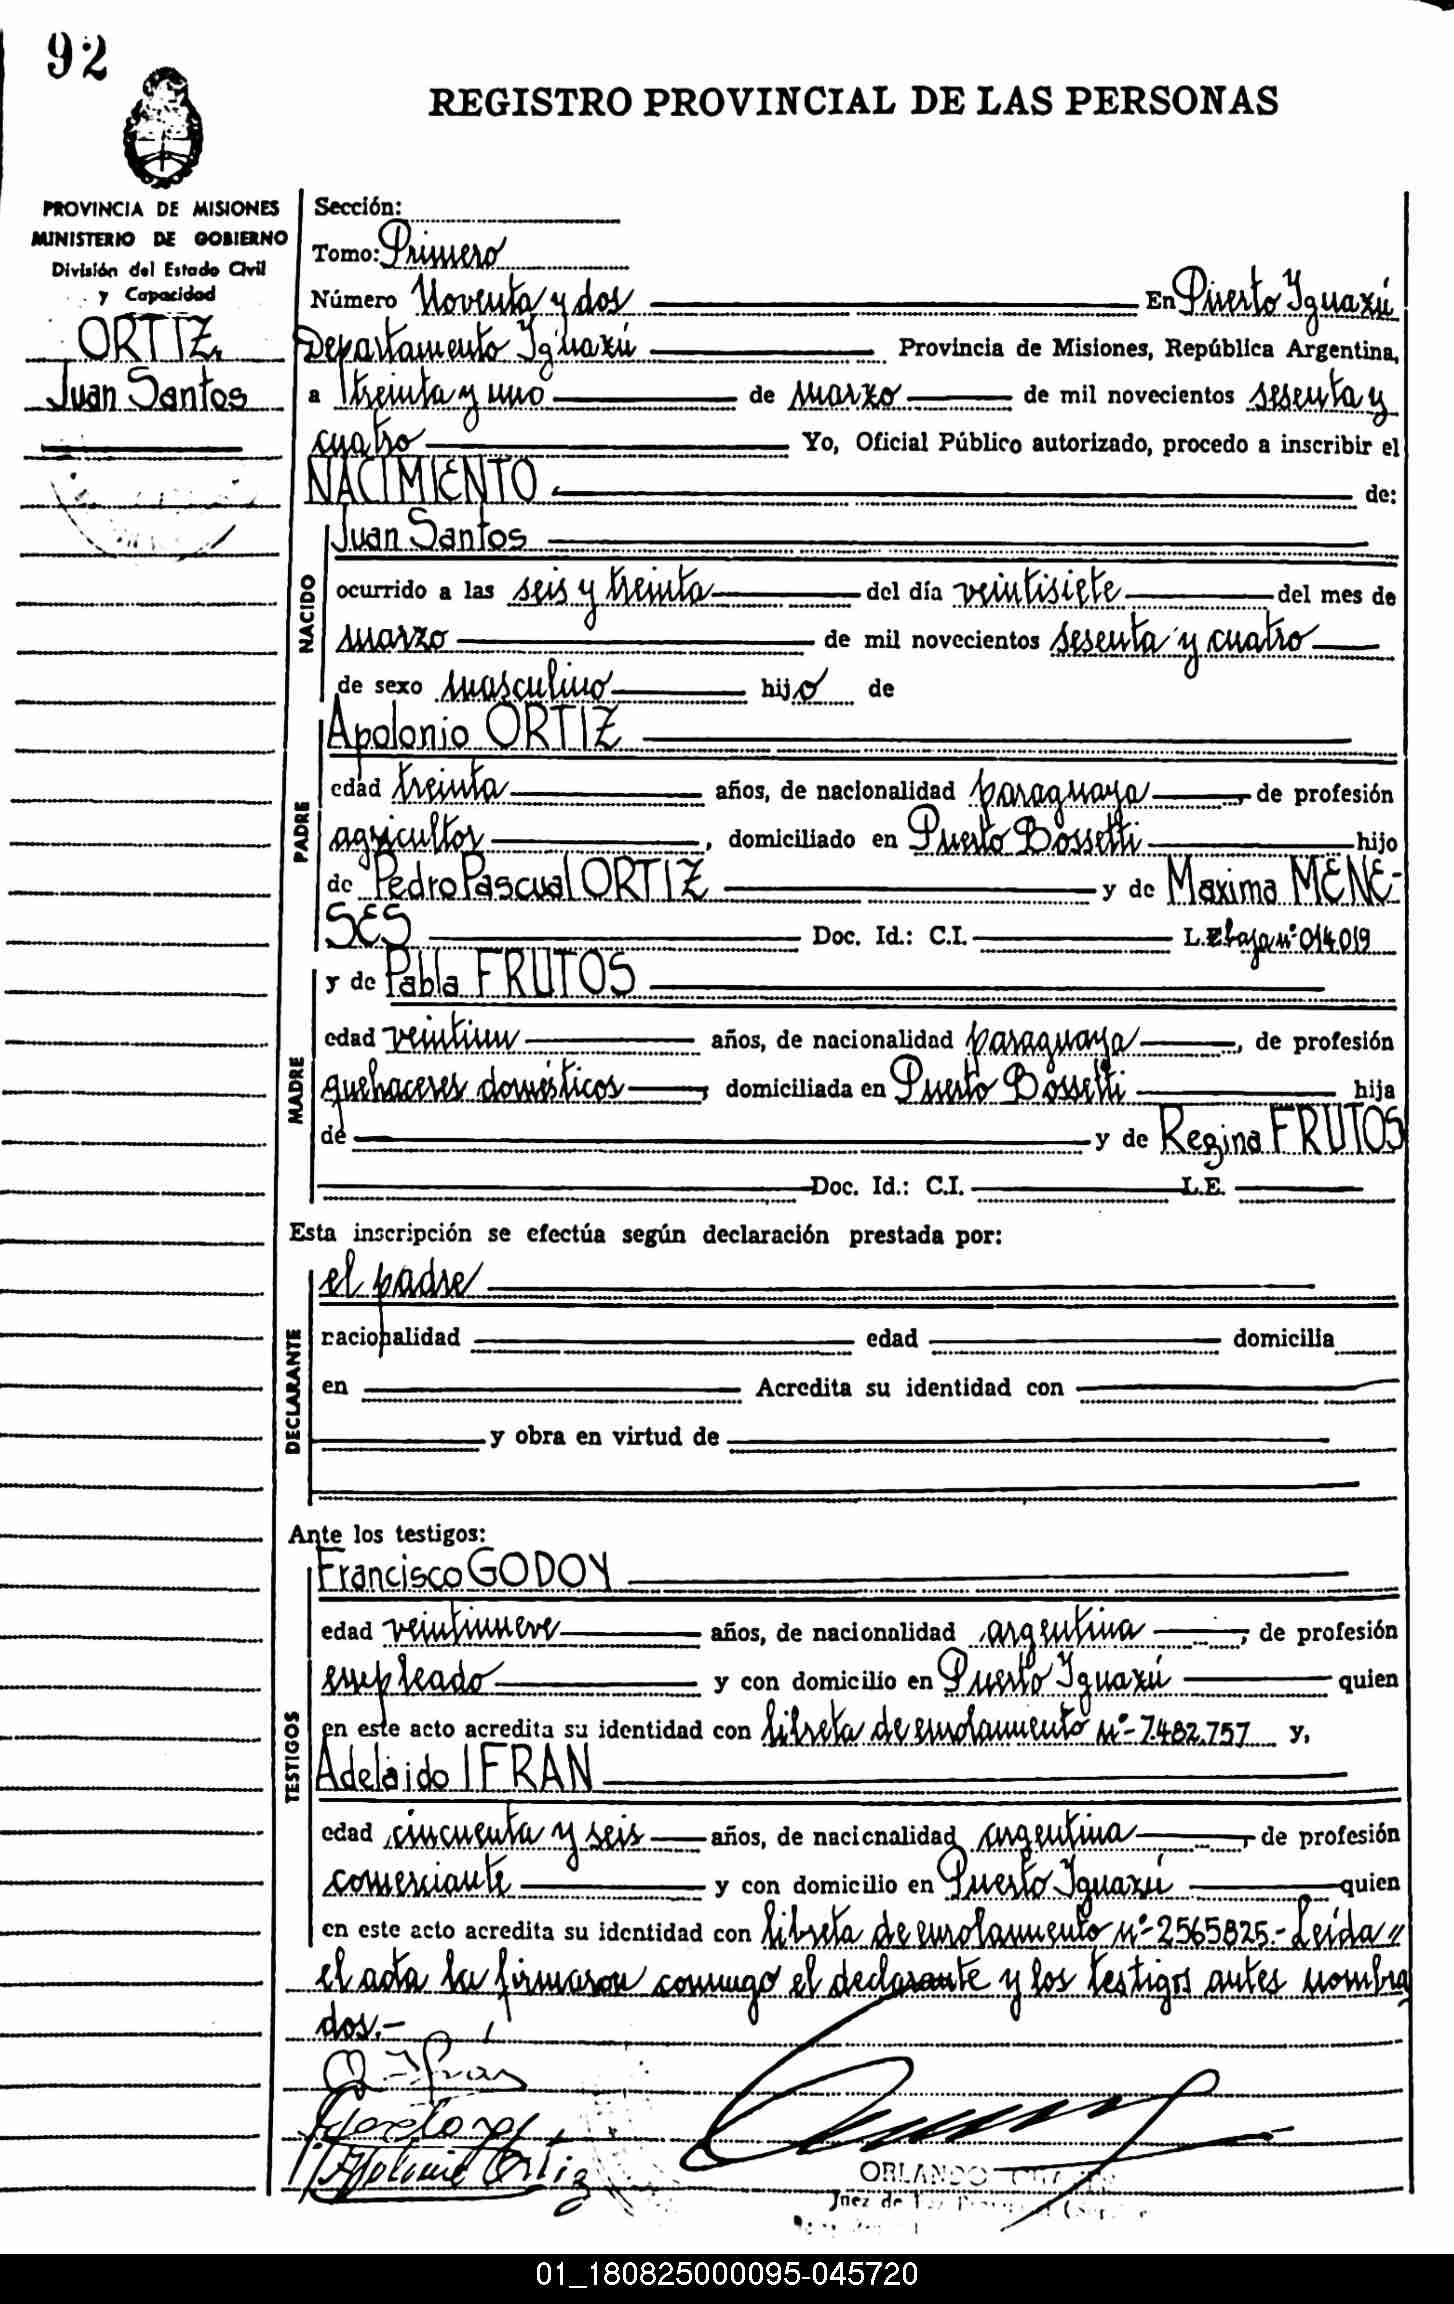 92
REGISTRO PROVINCIAL DE LAS PERSONAS
PROVINCIA DE MISIONES
MINISTERIO DE GOBIERNO
División del Estado Civil
y Capacidad
ORTIZ,
Juan Santos
Sección:
Tomo: Primero
Número Noventa y dos En Puerto Iguazú
Departamento Iguazú Provincia de Misiones, República Argentina,
a treinta y uno de marzo de mil novecientos sesenta y
cuatro Yo, Oficial Público autorizado, procedo a inscribir el
NACIMIENTO de:
NACIDO
Juan Santos
ocurrido a las seis y treinta del día veintisiete del mes de
marzo de mil novecientos sesenta y cuatro
de sexo masculino hijo de
PADRE
Apolonio ORTIZ
edad treinta años, de nacionalidad paraguaya, de profesión
agricultor, domiciliado en Puerto Bossetti hijo
de Pedro Pascual ORTIZ y de Maxima MENE-
SES Doc. Id.: C.I. L.E baja nº 014.019
MADRE
y de Pabla FRUTOS
edad veintiun años, de nacionalidad paraguaya, de profesión
quehaceres domésticos, domiciliada en Puerto Bossetti hija
de y de Regina FRUTOS
Doc. Id.: C.I. L.E.
Esta inscripción se efectúa según declaración prestada por:
DECLARANTE
el padre
nacionalidad edad domicilia
en Acredita su identidad con
y obra en virtud de
Ante los testigos:
TESTIGOS
Francisco GODOY
edad veintinueve años, de nacionalidad argentina, de profesión
empleado y con domicilio en Puerto Iguazú quien
en este acto acredita su identidad con libreta de enrolamiento nº- 7.482.757 y,
Adelaido IFRAN
edad cincuenta y seis años, de nacionalidad argentina, de profesión
comerciante y con domicilio en Puerto Iguazú quien
en este acto acredita su identidad con libreta de enrolamiento nº- 2565825.- Leída
el acta la firmaron conmigo el declarante y los testigos antes nombra
dos.-
A. Ifrán
Apolonio Ortiz
ORLANDO
Juez de
01_180825000095-045720